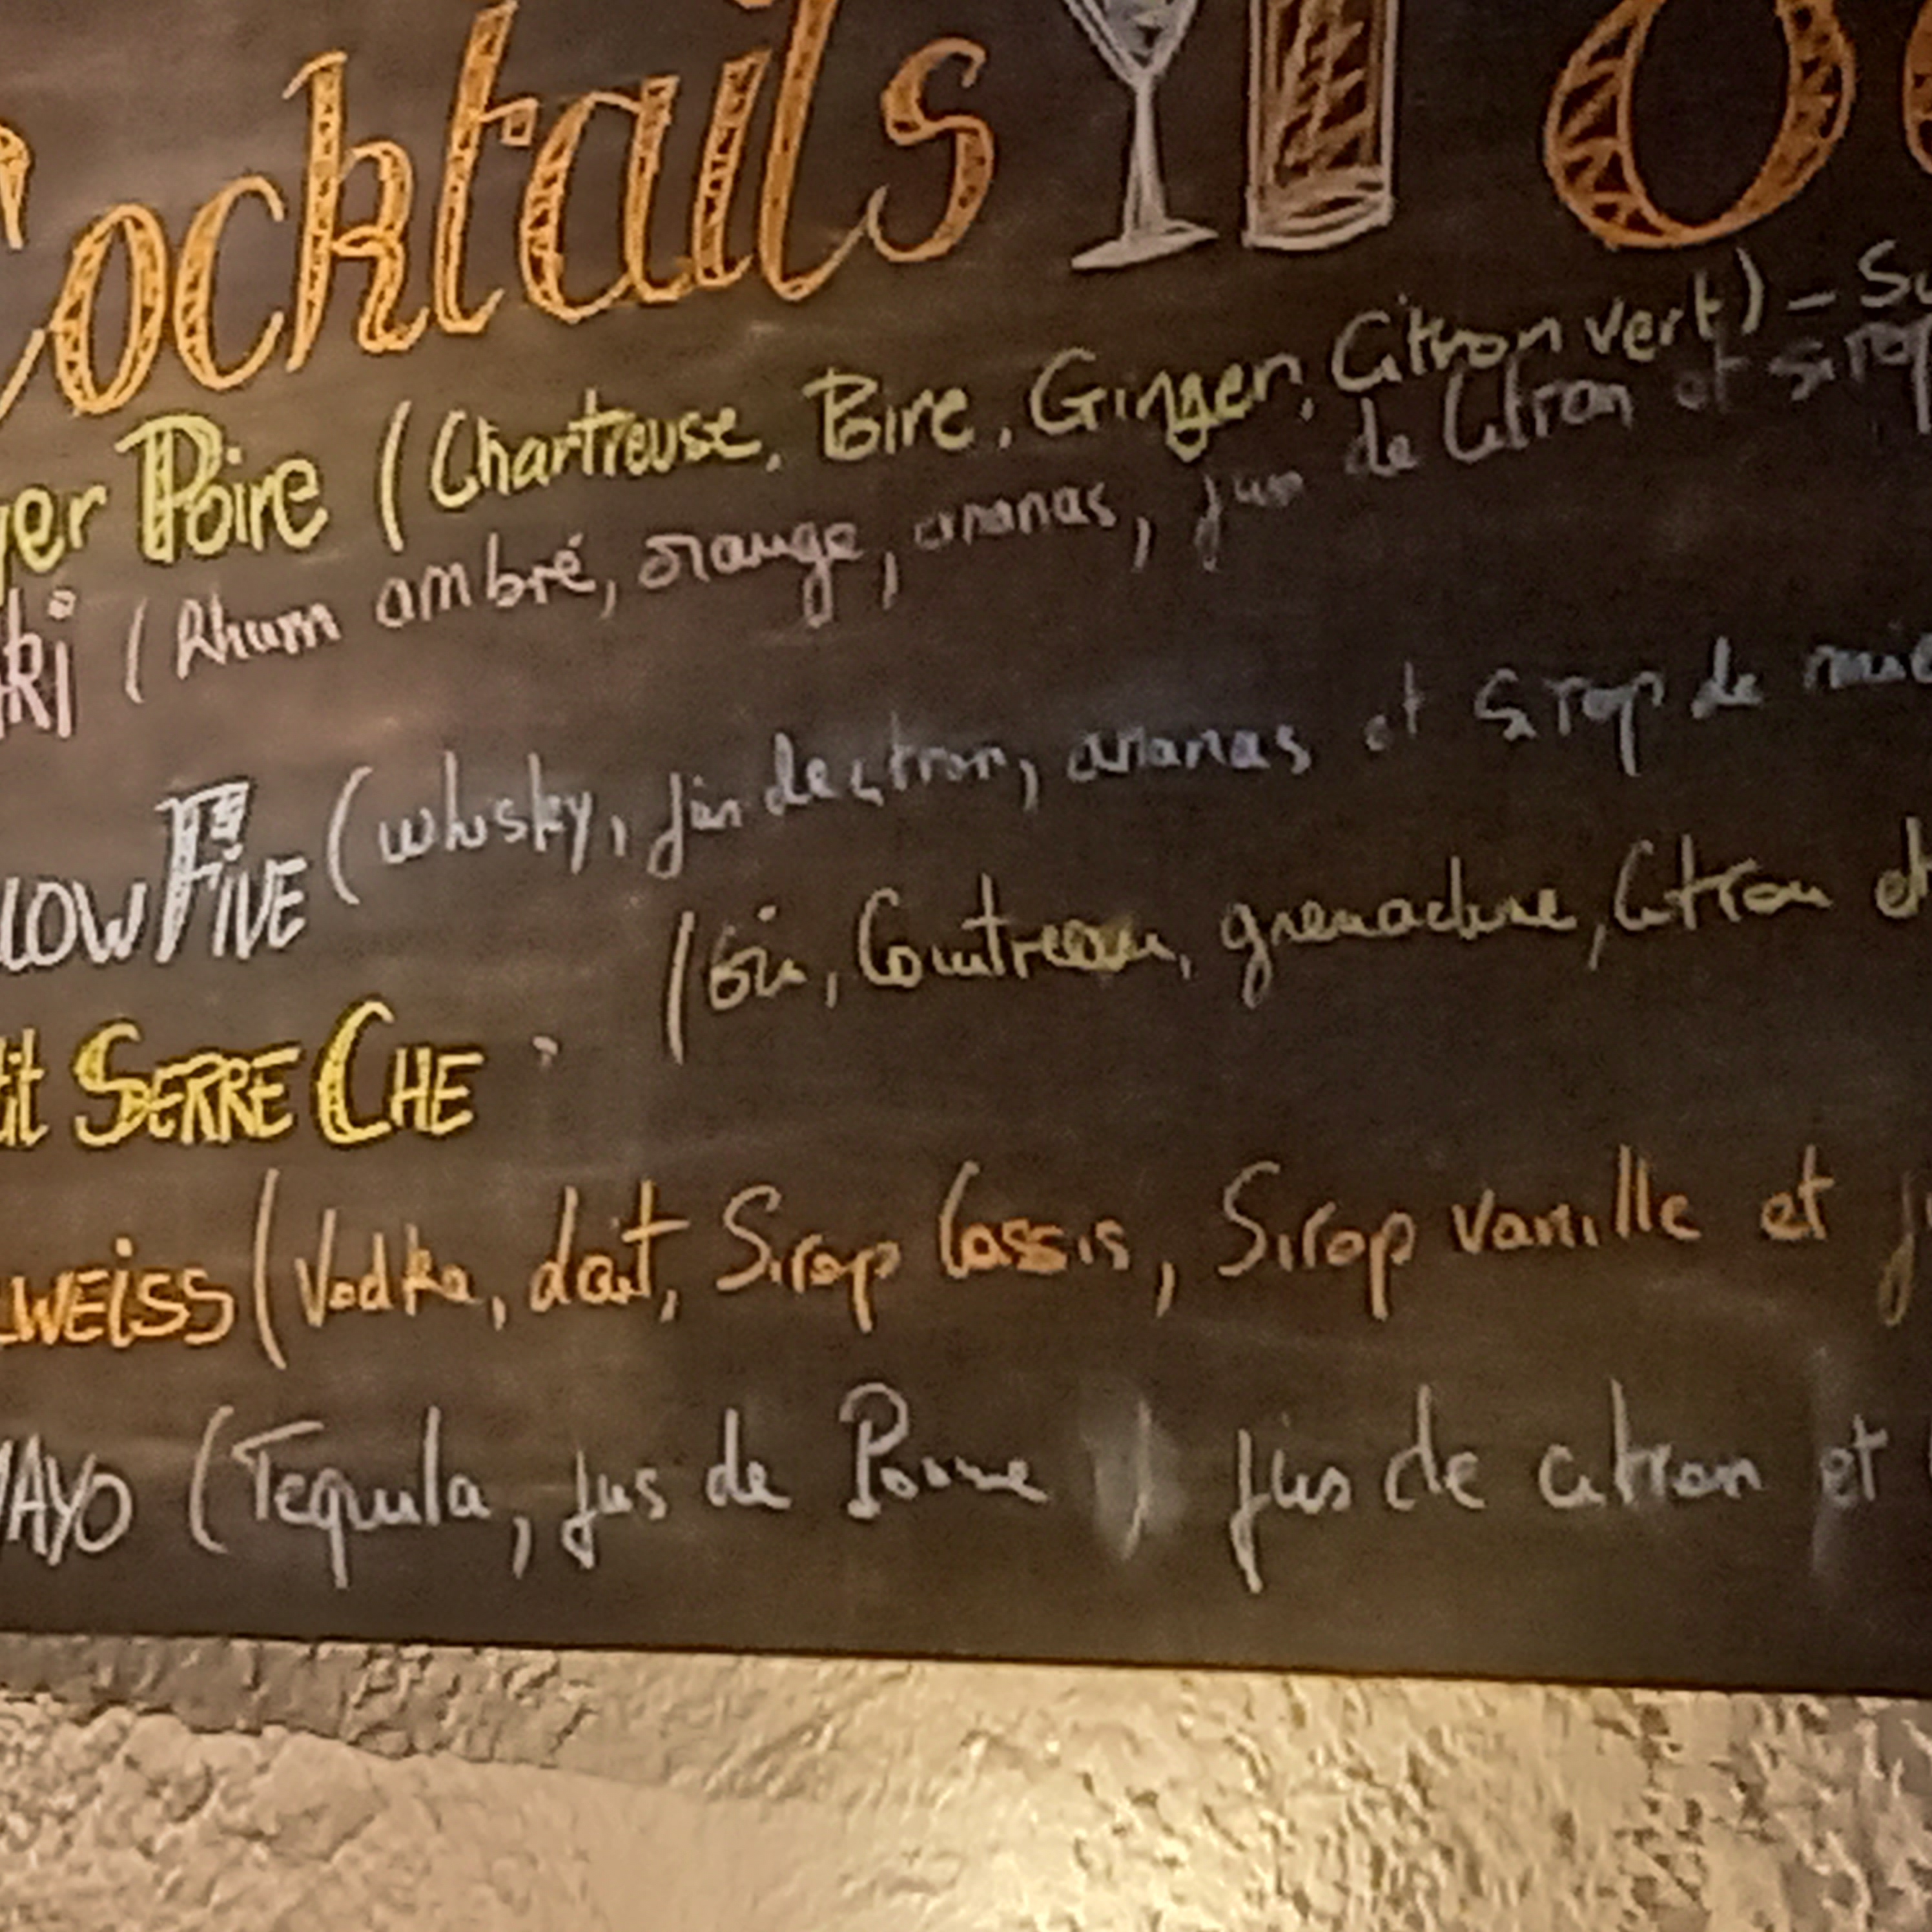 Cocktails 8
yer Poire (Chartreuse, Poire, Ginger, Citron vert) - Su
ki (Rhum ambré, orange, ananas, jus de Citron et sirop
LOW FIVE (whisky, jus de citron, ananas et sirop de mie
(Gin, Cointreau, grenadine, Citron et
tit SERRE CHE
LWEISS (Vodka, lait, Sirop Cassis, Sirop vanille et j
MAYO (Tequila, jus de Pomme , jus de citron et